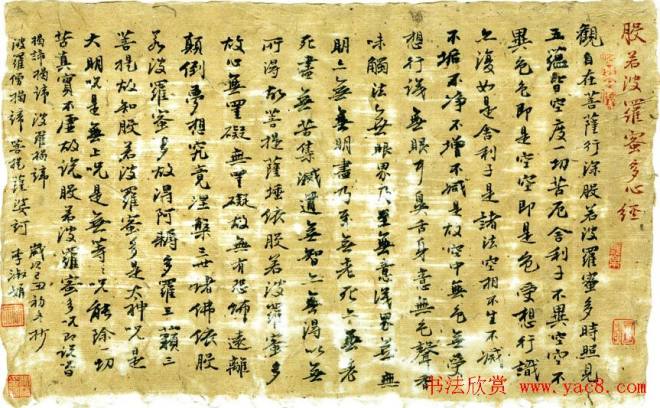 般若波羅蜜多心經
觀自在菩薩行深般若波羅蜜多時照見
五蘊皆空度一切苦厄舍利子不異空空不
異色色即是空空即是色受想行識
亦復如是舍利子是諸法空相不生不滅
不垢不净不增不減是故空中無色無受
想行識無眼耳鼻舌身意無色聲香
味觸法無眼界乃至無意識界並無
明亦無無明盡乃至無老死亦無老
死盡無苦集滅道無智亦無得以無
所得故菩提薩埵依般若波羅蜜多
故心無罣礙無罣礙故無有恐怖遠離
顛倒夢想究竟涅槃三世諸佛依般
若波羅蜜多故得阿耨多羅三藐三
菩提故知般若波羅蜜多是大神咒是
大明咒是無上咒是無等等咒能除一切
苦真實不虛故說般若波羅蜜多咒即說曰
揭諦揭諦波羅揭諦 歲次己丑初冬抄
波羅僧揭諦菩提薩婆訶 李淑娟
书法欣赏
www.yac8.com